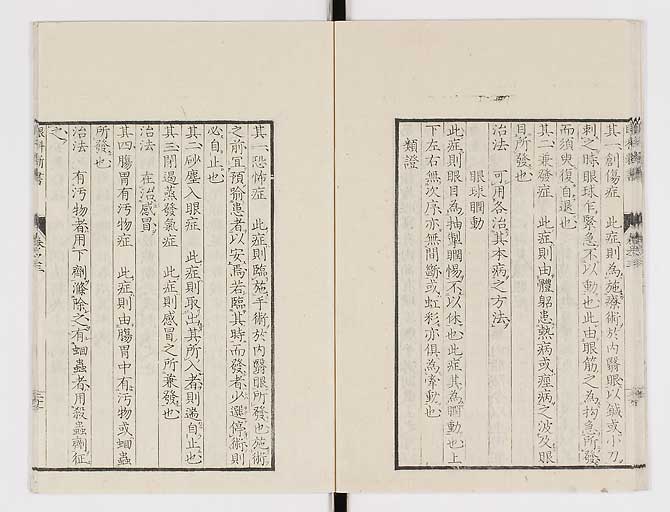 其一創傷症　此症則爲施療術於内翳眼以鍼或小刀
刺之時眼球乍緊急不以動也此由眼筋之爲拘急所發
而須臾復自退也
其二兼發症　此症則由體軀患熱病或瘟病之波及眼
目所發也
治法　可用各治其本病之方法
眼球瞤動
此症則眼目爲抽掣瞤惕不以休也此症其爲瞤動也上
下左右無次序亦無間斷或虹彩亦俱爲牽動也
類證
其一恐怖症　此症則臨施手術於内翳眼所發也施術
之前宜預喩患者以安焉若臨其時而發者少遲停術則
必自止也
其二砂塵入眼症　此症則取出其所入者則遏自止也
其三閉遏蒸發氣症　此症則感冒之所兼發也
治法　在治感冒
其四腸胃有汚物症　此症則由腸胃中有汚物或蛔蟲
所發也
治法　有汚物者用下劑滌除之有蛔蟲者用殺蟲劑征
之
眼科新書